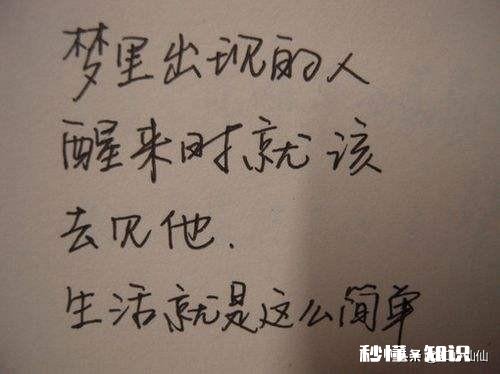 梦里出现的人
醒来时就该
去见他.
生活就是这么简单
秒懂 知识